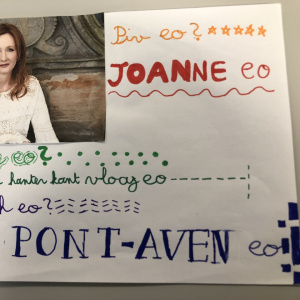 Piv eo?
JOANNE eo
eo?
hanter kant vloaz eo
eo?
PONT-AVEN eo